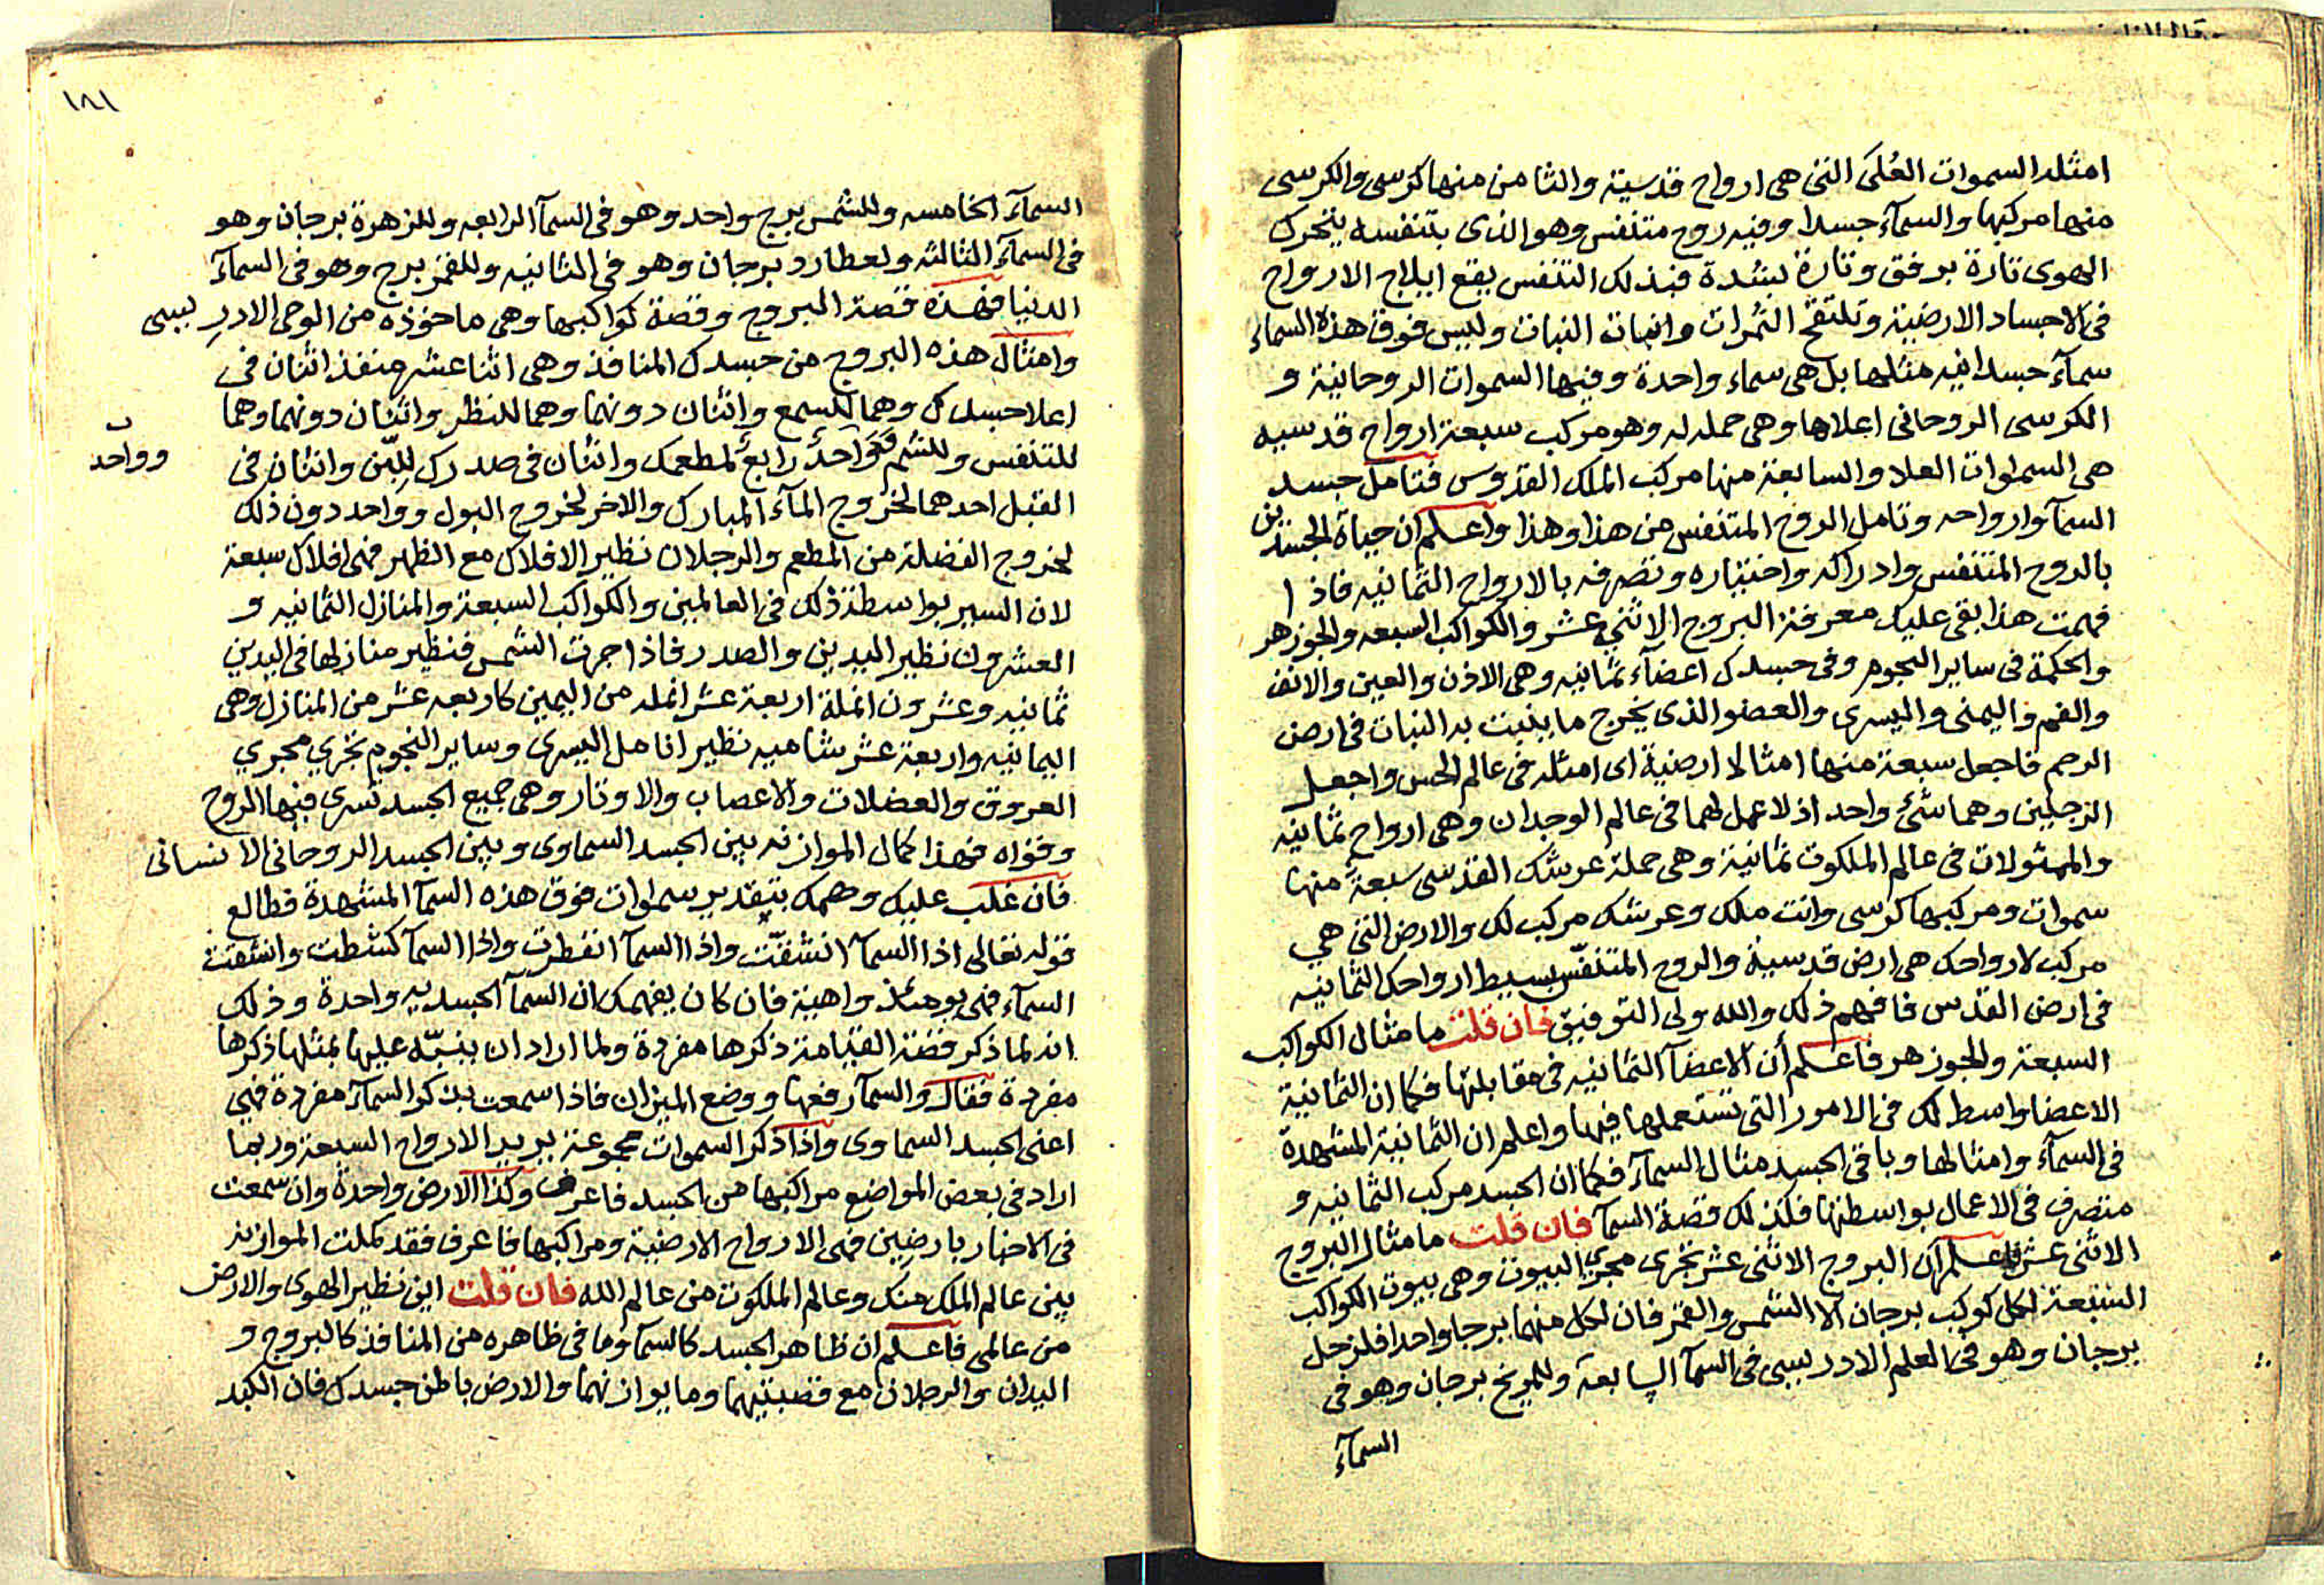 امثله السموات العُلَى التى هى ارواح قدسية والثامن منها كرسى والكرسى
منها مركبها والسمآء جسدا وفيه روح متنفس وهو الذى بتنفسه يتحرك
الهوى تارة برفق وتارة بشدة فبذلك التنفس يقع ايلاج الارواح
فى الاجساد الارضية وتلتقح الثمرات وانبات النبات وليس فوق هذه السماء
سمآء جسدانيه مثلها بل هى سماء واحدة وفيها السموات الروحانية و
الكرسى الروحانى اعلاها وهى حمله له وهو مركب سبعة ارواح قدسيه
هى السموات العلا والسابعة منها مركب الملك القدوس فتامل جسد
السمآ وارواحه وتامل الروح المتنفس من هذا وهذا واعلم ان حياة الجسدين
بالروح المتنفس وادراكه واختياره وتصرفه بالارواح الثمانيه فاذا
فهمت هذا بقى عليك معرفة البروج الاثنى عشر والكواكب السبعه والجوزهر
والحكمة فى ساير النجوم وفى جسدك اعضآء ثمانيه وهى الاذن والعين والانف
والفم واليمنى واليسرى والعضو الذى يخرج ما ينبت به النبات فى ارض
الرحم فاجعل سبعة منها امثالا ارضية اى امثله فى عالم الحس واجعل
الرجلين وهما شئ واحد اذ لا عمل لهما فى عالم الوجدان وهى ارواح ثمانيه
والممثولات فى عالم الملكوت ثمانية وهى حملة عرشك القدسى سبعة منها
سموات ومركبها كرسى وانت ملك وعرشك مركب لك والارض التى هي
مركب لارواحك هى ارض قدسية والروح المتنفّس بسيط ارواحك الثمانيه
فى ارض القدس فافهم ذلك والله ولى التوفيق فان قلت ما مثال الكواكب
السبعة والجوزهر فاعلم أن الاعضآ الثمانيه فى مقابلتها فكما ان الثمانية
الاعضا واسط لك فى الامور التى تستعملها فيها واعلم ان الثمانية المشهدة
فى السمآء وامثالها وباقى الجسد مثال السمآء فكما ان الجسد مركب الثمانيه و
متصرف فى الاعمال بواسطتها فكذلك قصة السمآ فان قلت ما مثال البروج
الاثنى عشر فاعلم ان البروج الاثنى عشر تجرى مجرى البيوت وهى بيوت الكواكب
السبعة لكل كوكب برجان الا الشمس والقمر فان لكل منهما برجا واحدا فلزحل
برجان وهو فى العلم الادريسى فى السمآ السابعة وللمريخ برجان وهو فى
السمآء
١٨١
السمآء الخامسه وللشمس برج واحد وهو فى السمآ الرابعه وللزهرة برجان وهو
فى السمآء الثالثه ولعطارد برجان وهو فى الثانيه وللقمر برج وهو فى السمآء
الدنيا فهذه قصة البروج وقصة كواكبها وهى ماخوذه من الوحى الادريسى
وامثال هذه البروج من جسدك المنافذ وهى اثنا عشر منفذ اثنان فى
اعلا جسدك وهما للسمع واثنان دونهما وهما للنظر واثنان دونهما وهما
للتنفس وللشم وَوَاحدٌ رابعٌ لمطعمك واثنان فى صدرك للّبن واثنان فى
وواحد
القبل احدهما لخروج المآء المبارك والاخر لخروج البول وواحد دون ذلك
لخروج الفضلة من المطعم والرجلان نظير الافلاك مع الظهر فهى افلاك سبعة
لان السير بواسطة ذلك فى العالمين والكواكب السبعة والمنازل الثمانيه و
العشرون نظير اليدين والصدر فاذا جرت الشمس فنظير منازلها فى اليدين
ثمانيه وعشرون انملة اربعة عشر انمله من اليمين كاربعه عشر من المنازل وهى
اليمانيه واربعة عشر شاميه نظير انامل اليسرى وساير النجوم تجري مجري
العروق والعضلات والاعصاب والاوتار وهى جميع الجسد تسرى فيها الروح
وقواه فهذا كمال الموازنه بين الجسد السماوى وبين الجسد الروحانى الانسانى
فان غلب عليك وهمك بتقدير سموات فوق هذه السمآ المشهدة فطالع
قوله تعالى اذا السمآ انشقّت واذا السمآ انفطرت واذا السمآ كشطت وانشقت
السمآء فهى يومئذ واهية فان كان يفهمك ان السمآ الجسديه واحدة وذلك
انه لما ذكر قصة القيامة ذكرها مفردة ولما اراد ان ينبّه عليها بمثلها ذكرها
مفردة فقال والسمآء رفعها ووضع الميزان فاذا سمعت بذكر السمآء مفردة فهى
اعنى الجسد السماوى واذا ذكر السموات مجموعة يريد الارواح السبعة وربما
اراد فى بعض المواضع مراكبها من الجسد فاعرف وكذا الارض واحدة وان سمعت
فى الاخبار بارضين فهى الارواح الارضية ومراكبها فاعرف فقد كملت الموازنه
بين عالم الملك منك وعالم الملكوت من عالم الله فان قلت اين نظير الهوى والارض
من عالمى فاعلم ان ظاهر الجسد كالسمآ وما فى ظاهره من المنافذ كالبروج و
اليدان والرجلان مع قصبتيهما وما يوازنهما والارض باطن جسدك فان الكبد